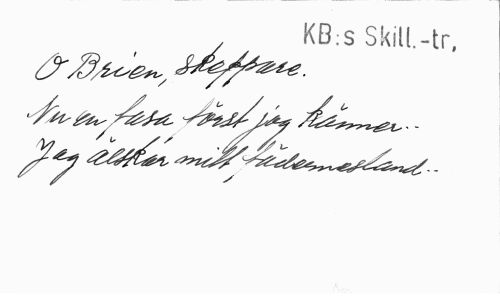 KB:s Skill.-tr.
O Brien, skeppare.
Nu en fasa först jag känner..
Jag älskar mitt fädernesland..